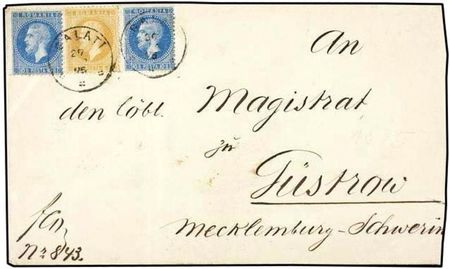 ROMANIA ROMANIA ROMANIA
GALATI
An
den Löbl. Magistrat
zu
Güstrow
Mecklemburg-Schwerin
fco,
No 843.